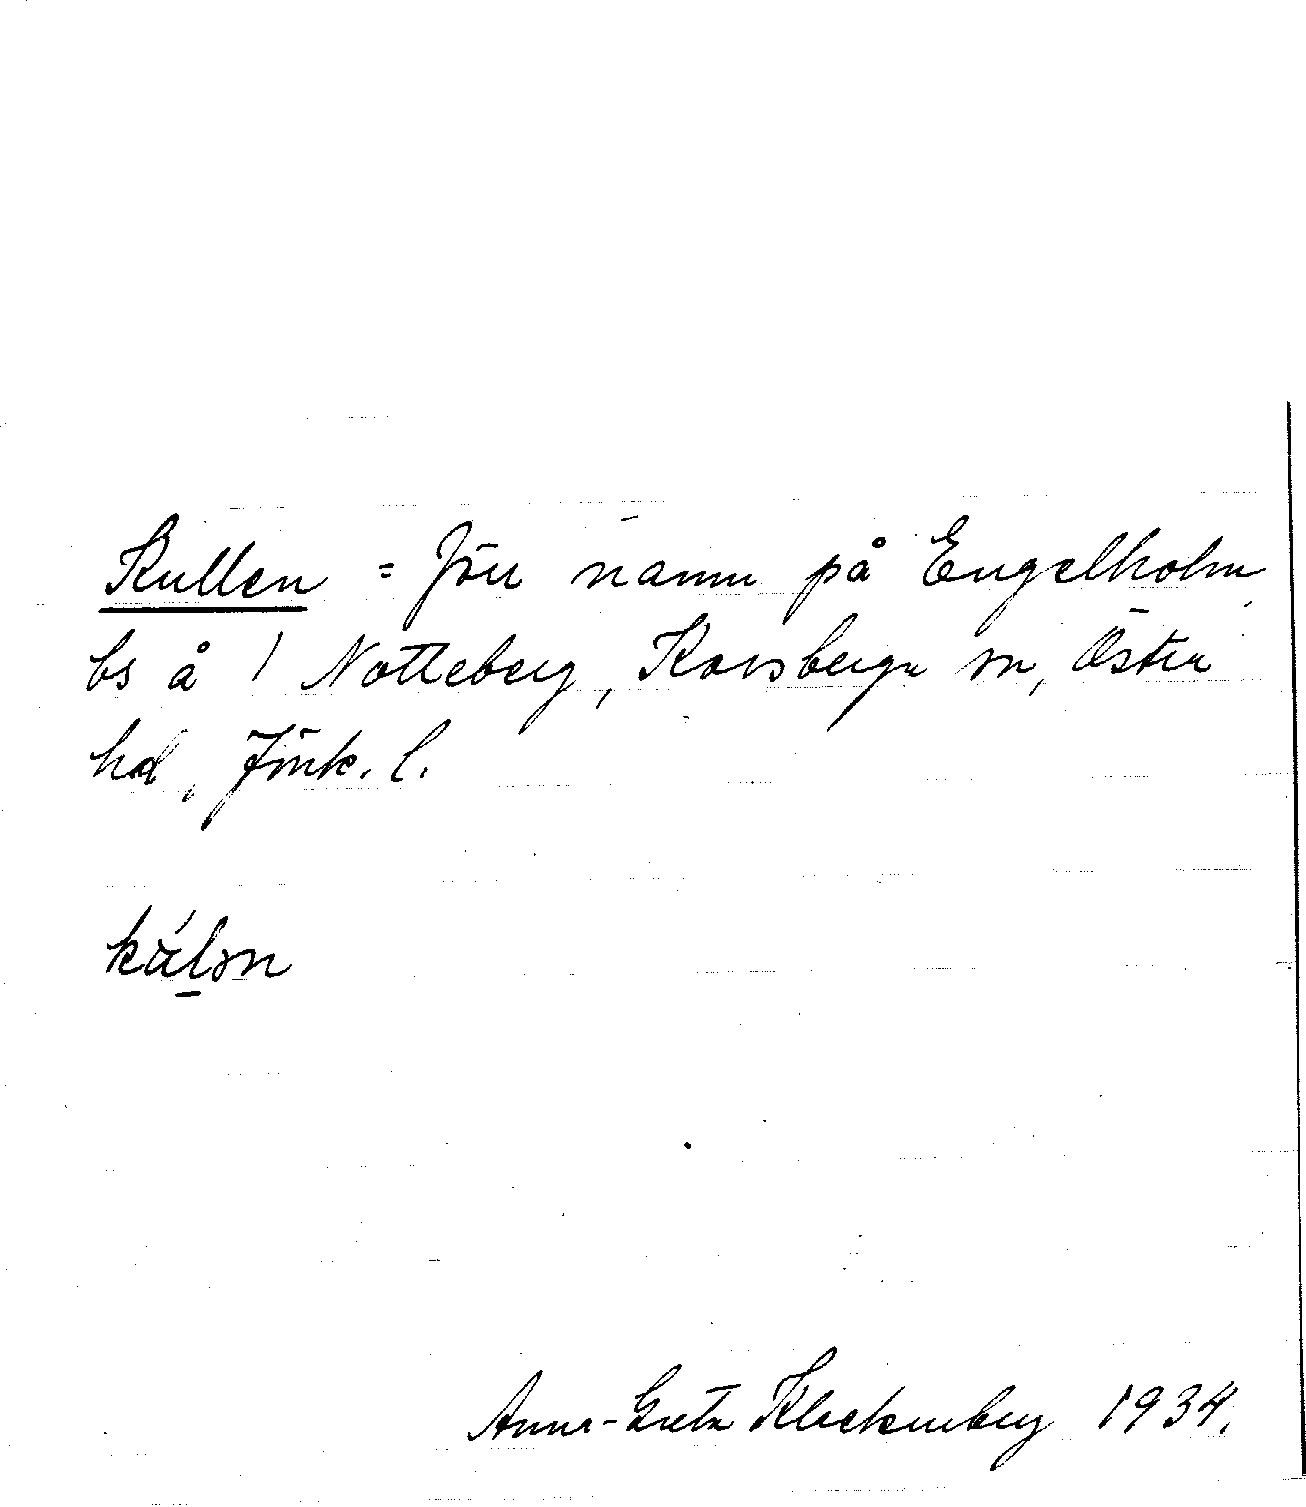 Kullen = förr namn på Engelholm,
bs å 1 Notteberg, Korsberga sn, Östra
hd, Jönk. l.
kúlən
Anna-Greta Klockenberg 1934.